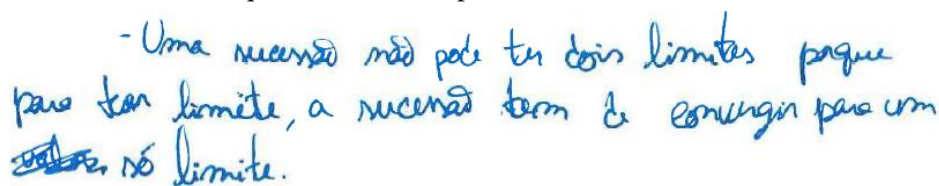 - Uma sucessão não pode ter dois limites porque
para ter limite, a sucessão tem de convergir para um
só limite.